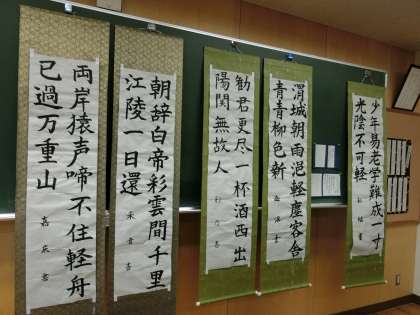 少年易老学難成一寸
光陰不可軽
渭城朝雨浥軽塵客舎
青青柳色新
勧君更尽一杯酒西出
陽関無故人
朝辞白帝彩雲間千里
江陵一日還
両岸猿声啼不住軽舟
已過万重山